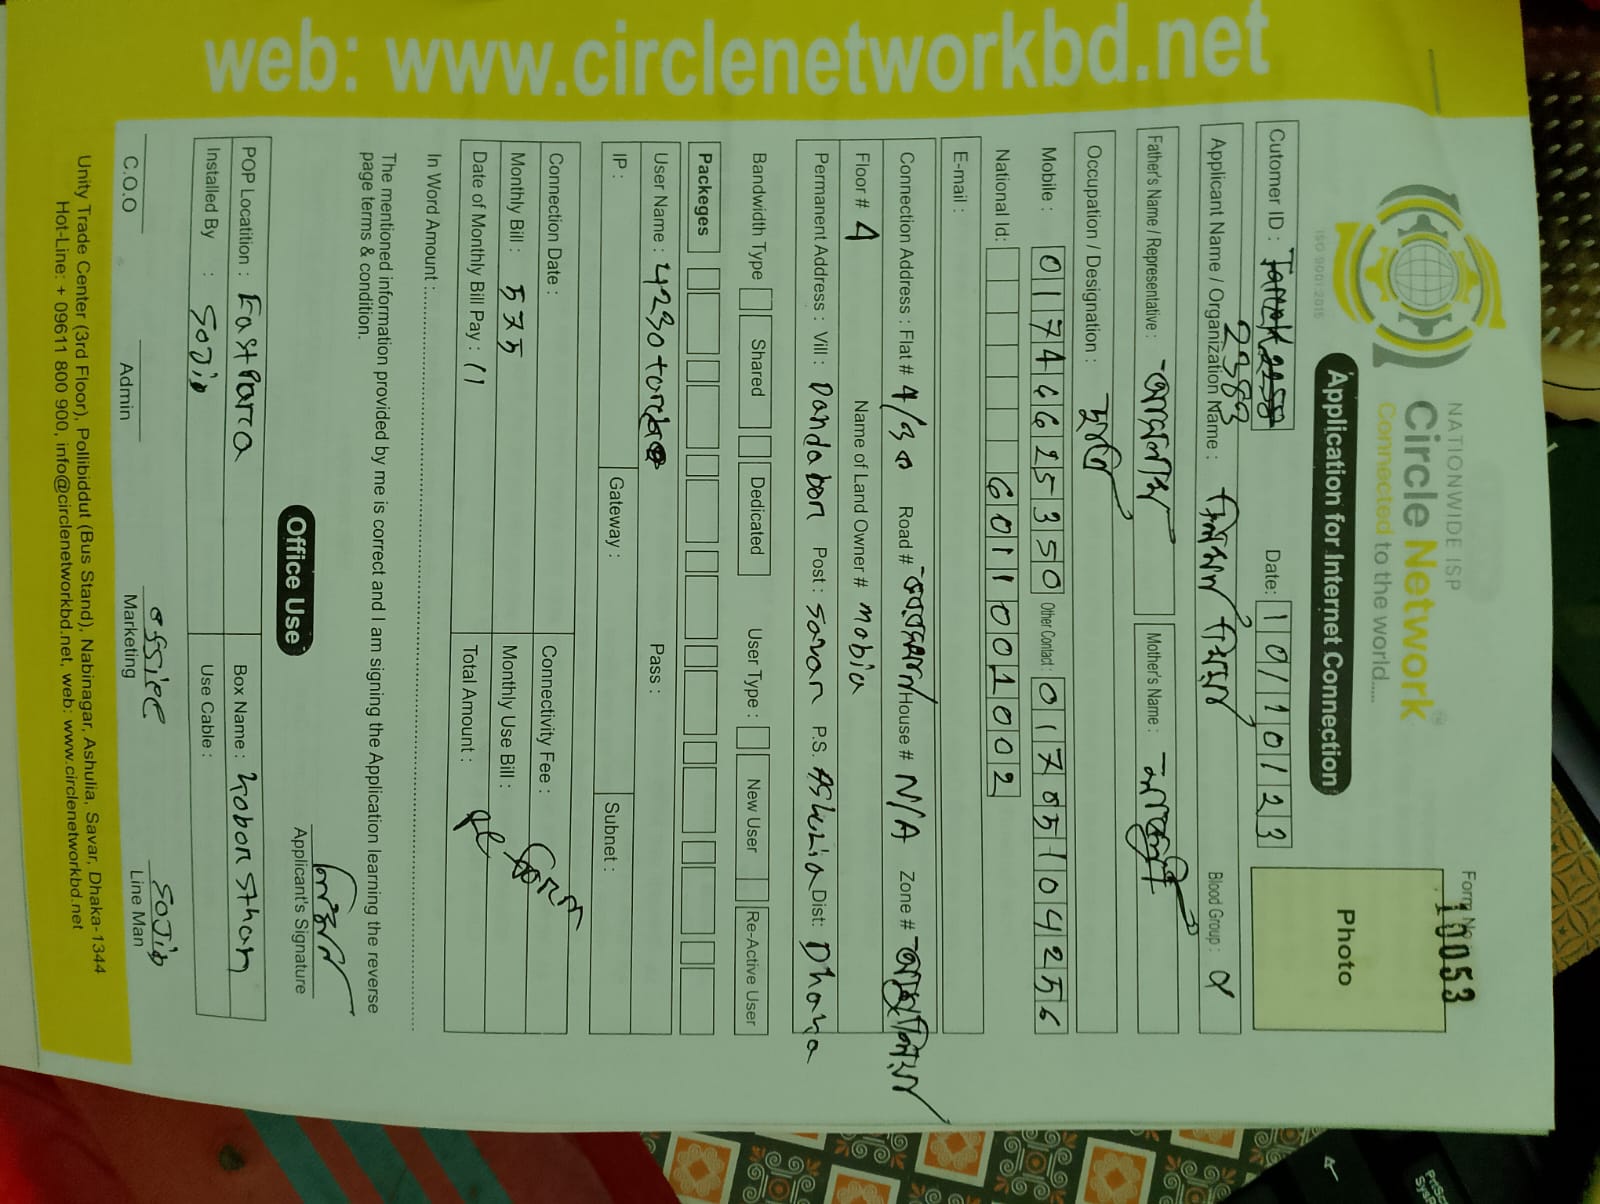 web: www.circlenetworkbd.net
NATIONWIDE ISP
Circle Network
Connected to the world.....
ISO 9001:2015
Form No
10053
Application for Internet Connection
Photo
Cutomer ID : Date: 10/10/23
2383
Applicant Name / Organization Name : Blood Group :
Father's Name / Representative : Mother's Name :
Occupation / Designation :
Mobile : 01746625350 Other Contact : 01705104256
National Id: 6011001002
E-mail :
Connection Address : Flat # 4/3 Road # House # N/A Zone #
Floor # 4 Name of Land Owner # mobia
Permanent Address : Vill : Dandabor Post : Savar P.S. Ashulia Dist: Dhaka
Bandwidth Type Shared Dedicated User Type : New User Re-Active User
Packeges
User Name : Pass :
IP : Gateway : Subnet :
Connection Date : Connectivity Fee :
Monthly Bill : 575 Monthly Use Bill :
Date of Monthly Bill Pay : 11 Total Amount :
In Word Amount :
The mentioned information provided by me is correct and I am signing the Application learning the reverse
page terms & condition.
Applicant's Signature
Office Use
POP Locatition : East Para Box Name : kobor sthan
Installed By : Sojib Use Cable :
office Sojib
C.O.O Admin Marketing Line Man
Unity Trade Center (3rd Floor), Pollibiddut (Bus Stand), Nabinagar, Ashulia, Savar, Dhaka-1344
Hot-Line: + 09611 800 900, info@circlenetworkbd.net, web: www.circlenetworkbd.net